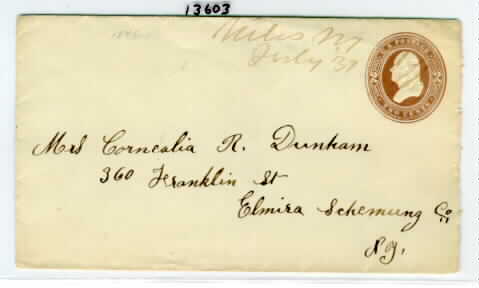 13603
Niles NY
July 31
U.S. POSTAGE
TWO CENTS
Mrs Cornealia R. Dunham
360 Franklin St
Elmira Schemung Co
N.Y.